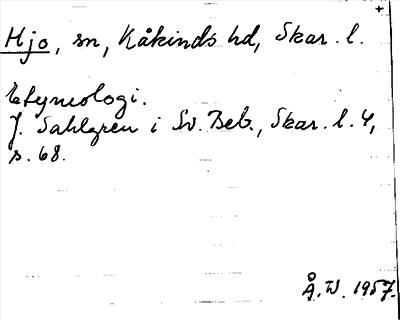 Hjo, sn, Kåkinds hd, Skar. l.
Etymologi.
J. Sahlgren i Sv. Beb., Skar. l. 4,
s. 68.
Å. W. 1957.